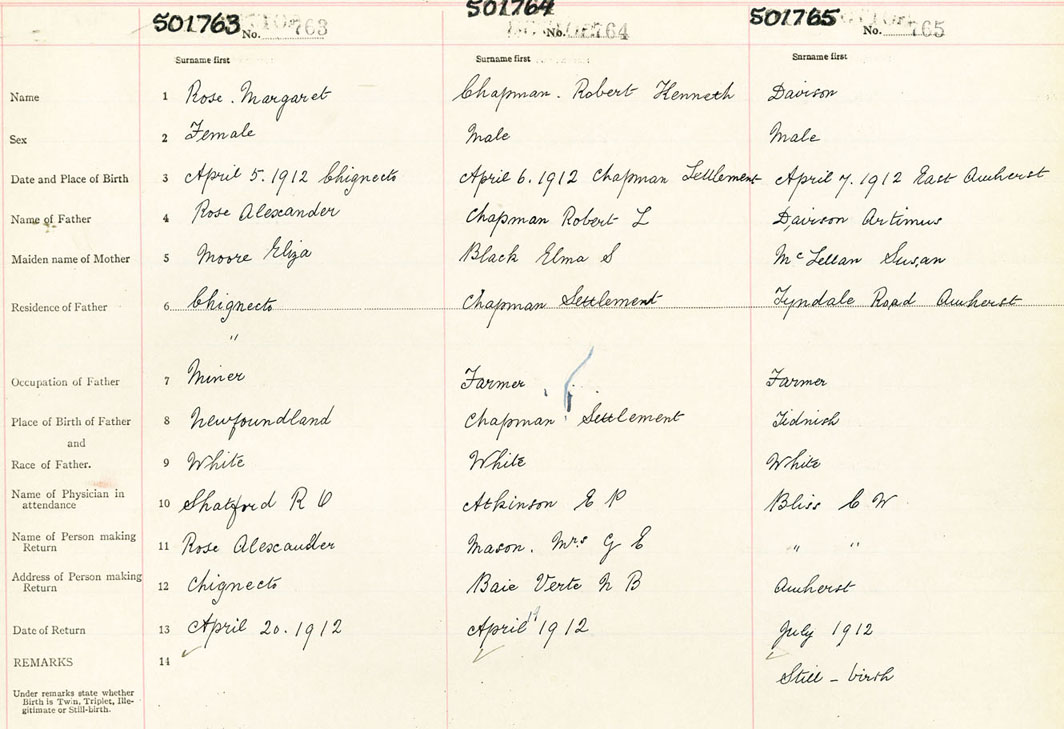 501763 501764 501765
No. 763 No. 764 No. 765
Surname first Surname first Surname first
Name 1 Rose. Margaret Chapman. Robert Kenneth Davison
Sex 2 Female Male Male
Date and Place of Birth 3 April 5. 1912 Chignecto April 6. 1912 Chapman Settlement April 7. 1912 East Amherst
Name of Father 4 Rose Alexander Chapman Robert L Davison Artimus
Maiden name of Mother 5 Moore Eliza Black Elma S McLellan Susan
Residence of Father 6 Chignecto Chapman Settlement Tyndale Road Amherst
"
Occupation of Father 7 Miner Farmer Farmer
Place of Birth of Father 8 Newfoundland Chapman Settlement Tidnish
and
Race of Father. 9 White White White
Name of Physician in attendance 10 Shatford R O Atkinson E P Bliss C W
Name of Person making Return 11 Rose Alexander Mason. Mrs G E " "
Address of Person making Return 12 Chignecto Baie Verte N B Amherst
Date of Return 13 April 20. 1912 April 19 1912 July 1912
REMARKS 14 Still - birth
Under remarks state whether
Birth is Twin, Triplet, Ille-
gitimate or Still-birth.